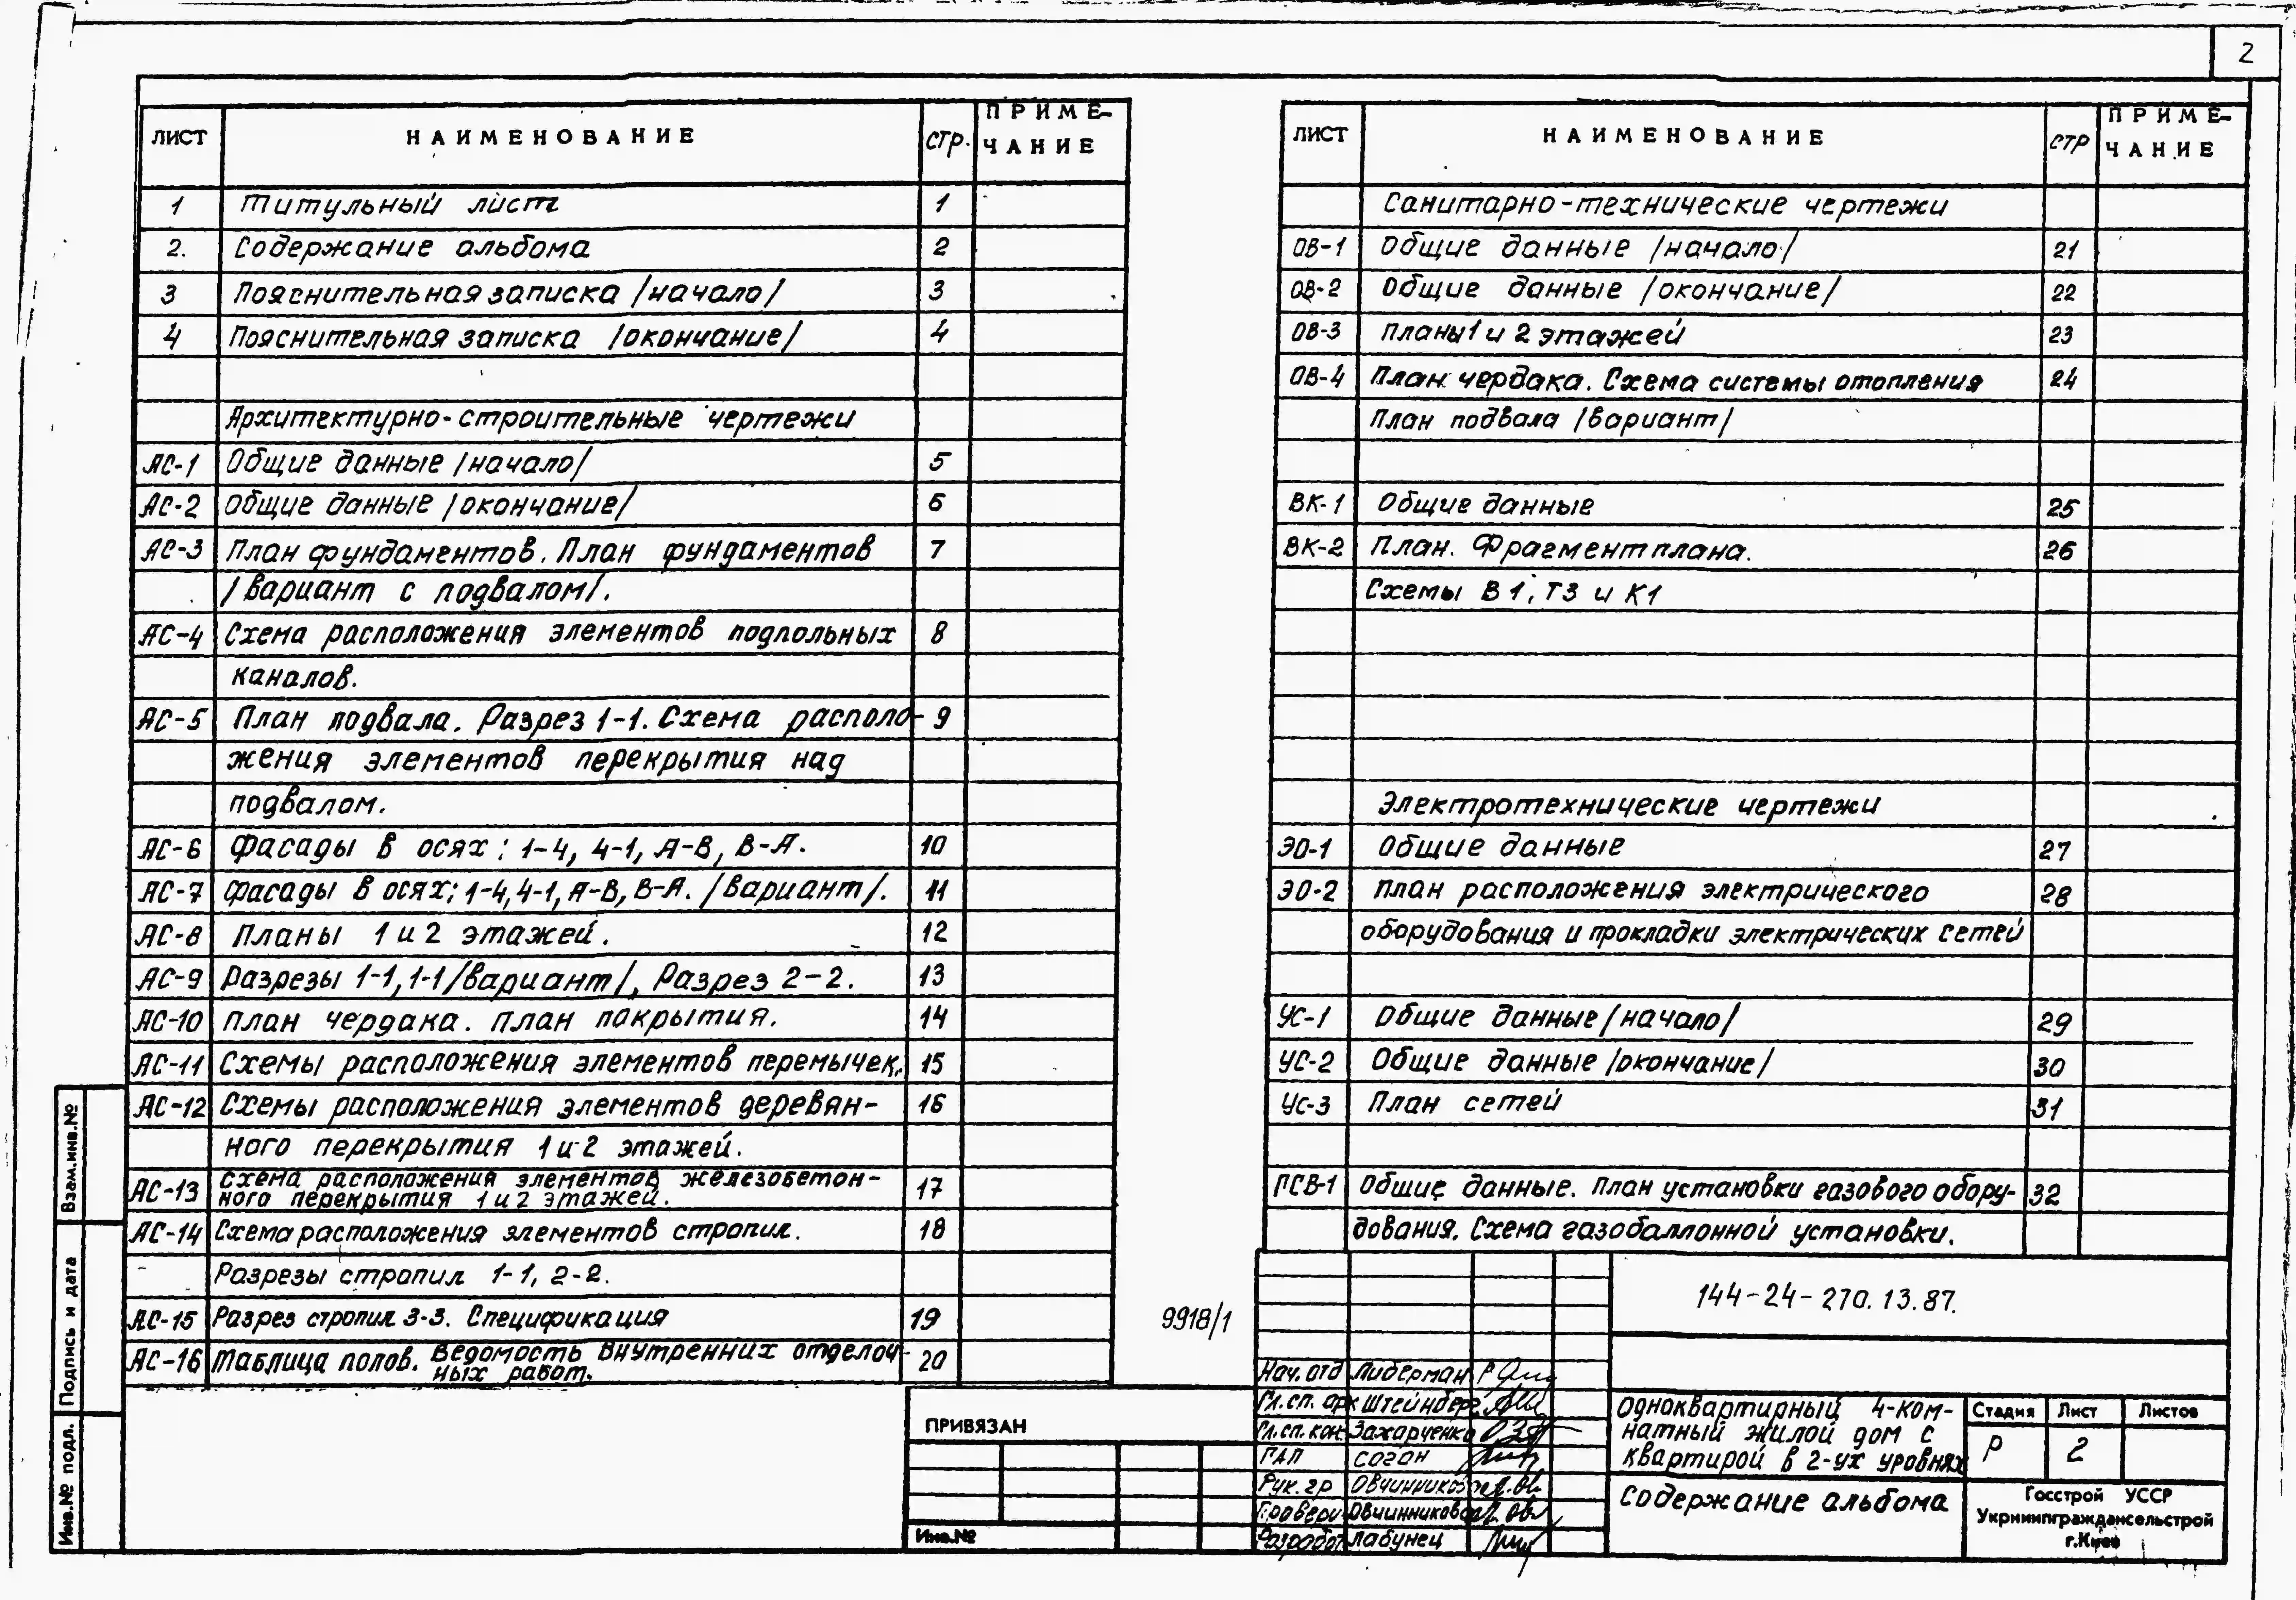 2
ЛИСТ НАИМЕНОВАНИЕ СТР. ПРИМЕ-
ЧАНИЕ
1 Титульный лист 1
2. Содержание альбома 2
3 Пояснительная записка /начало/ 3
4 Пояснительная записка /окончание/ 4
Архитектурно-строительные чертежи
АС-1 Общие данные /начало/ 5
АС-2 Общие данные /окончание/ 6
АС-3 План фундаментов. План фундаментов 7
/вариант с подвалом/.
АС-4 Схема расположения элементов подпольных 8
каналов.
АС-5 План подвала. Разрез 1-1. Схема располо- 9
жения элементов перекрытия над
подвалом.
АС-6 Фасады в осях: 1-4, 4-1, А-В, В-А. 10
АС-7 Фасады в осях; 1-4, 4-1, А-В, В-А. /вариант/. 11
АС-8 Планы 1 и 2 этажей. 12
АС-9 Разрезы 1-1, 1-1 /вариант/, Разрез 2-2. 13
АС-10 План чердака. План покрытия. 14
АС-11 Схемы расположения элементов перемычек. 15
АС-12 Схемы расположения элементов деревян- 16
ного перекрытия 1 и 2 этажей.
АС-13 Схема расположения элементов железобетон- 17
ного перекрытия 1 и 2 этажей.
АС-14 Схема расположения элементов стропил. 18
Разрезы стропил 1-1, 2-2.
АС-15 Разрез стропил 3-3. Спецификация 19
АС-16 Таблица полов. Ведомость внутренних отделоч- 20
ных работ.
ЛИСТ НАИМЕНОВАНИЕ СТР ПРИМЕ-
ЧАНИЕ
Санитарно-технические чертежи
ОВ-1 Общие данные /начало/ 21
ОВ-2 Общие данные /окончание/ 22
ОВ-3 Планы 1 и 2 этажей 23
ОВ-4 План чердака. Схема системы отопления 24
План подвала /вариант/
ВК-1 Общие данные 25
ВК-2 План. Фрагмент плана. 26
Схемы В1, Т3 и К1
Электротехнические чертежи
ЭО-1 Общие данные 27
ЭО-2 План расположения электрического 28
оборудования и прокладки электрических сетей
УС-1 Общие данные /начало/ 29
УС-2 Общие данные /окончание/ 30
УС-3 План сетей 31
ГСВ-1 Общие данные. План установки газового обору- 32
дования. Схема газобаллонной установки.
9918/1
144-24-270.13.87.
Нач. отд Либерман
Гл. сп. арх Штейнберг
Гл. сп. кон. Захарченко
ГАП Соган
Рук. гр Овчинникова
Провери Овчинникова
Разработ Лабунец
Одноквартирный 4-ком-
натный жилой дом с
квартирой в 2-ух уровнях
Стадия Лист Листов
Р 2
Содержание альбома
Госстрой УССР
Укрниипграждансельстрой
г.Киев
ПРИВЯЗАН
Инв.№
Взам.инв.№
Подпись и дата
Инв.№ подл.